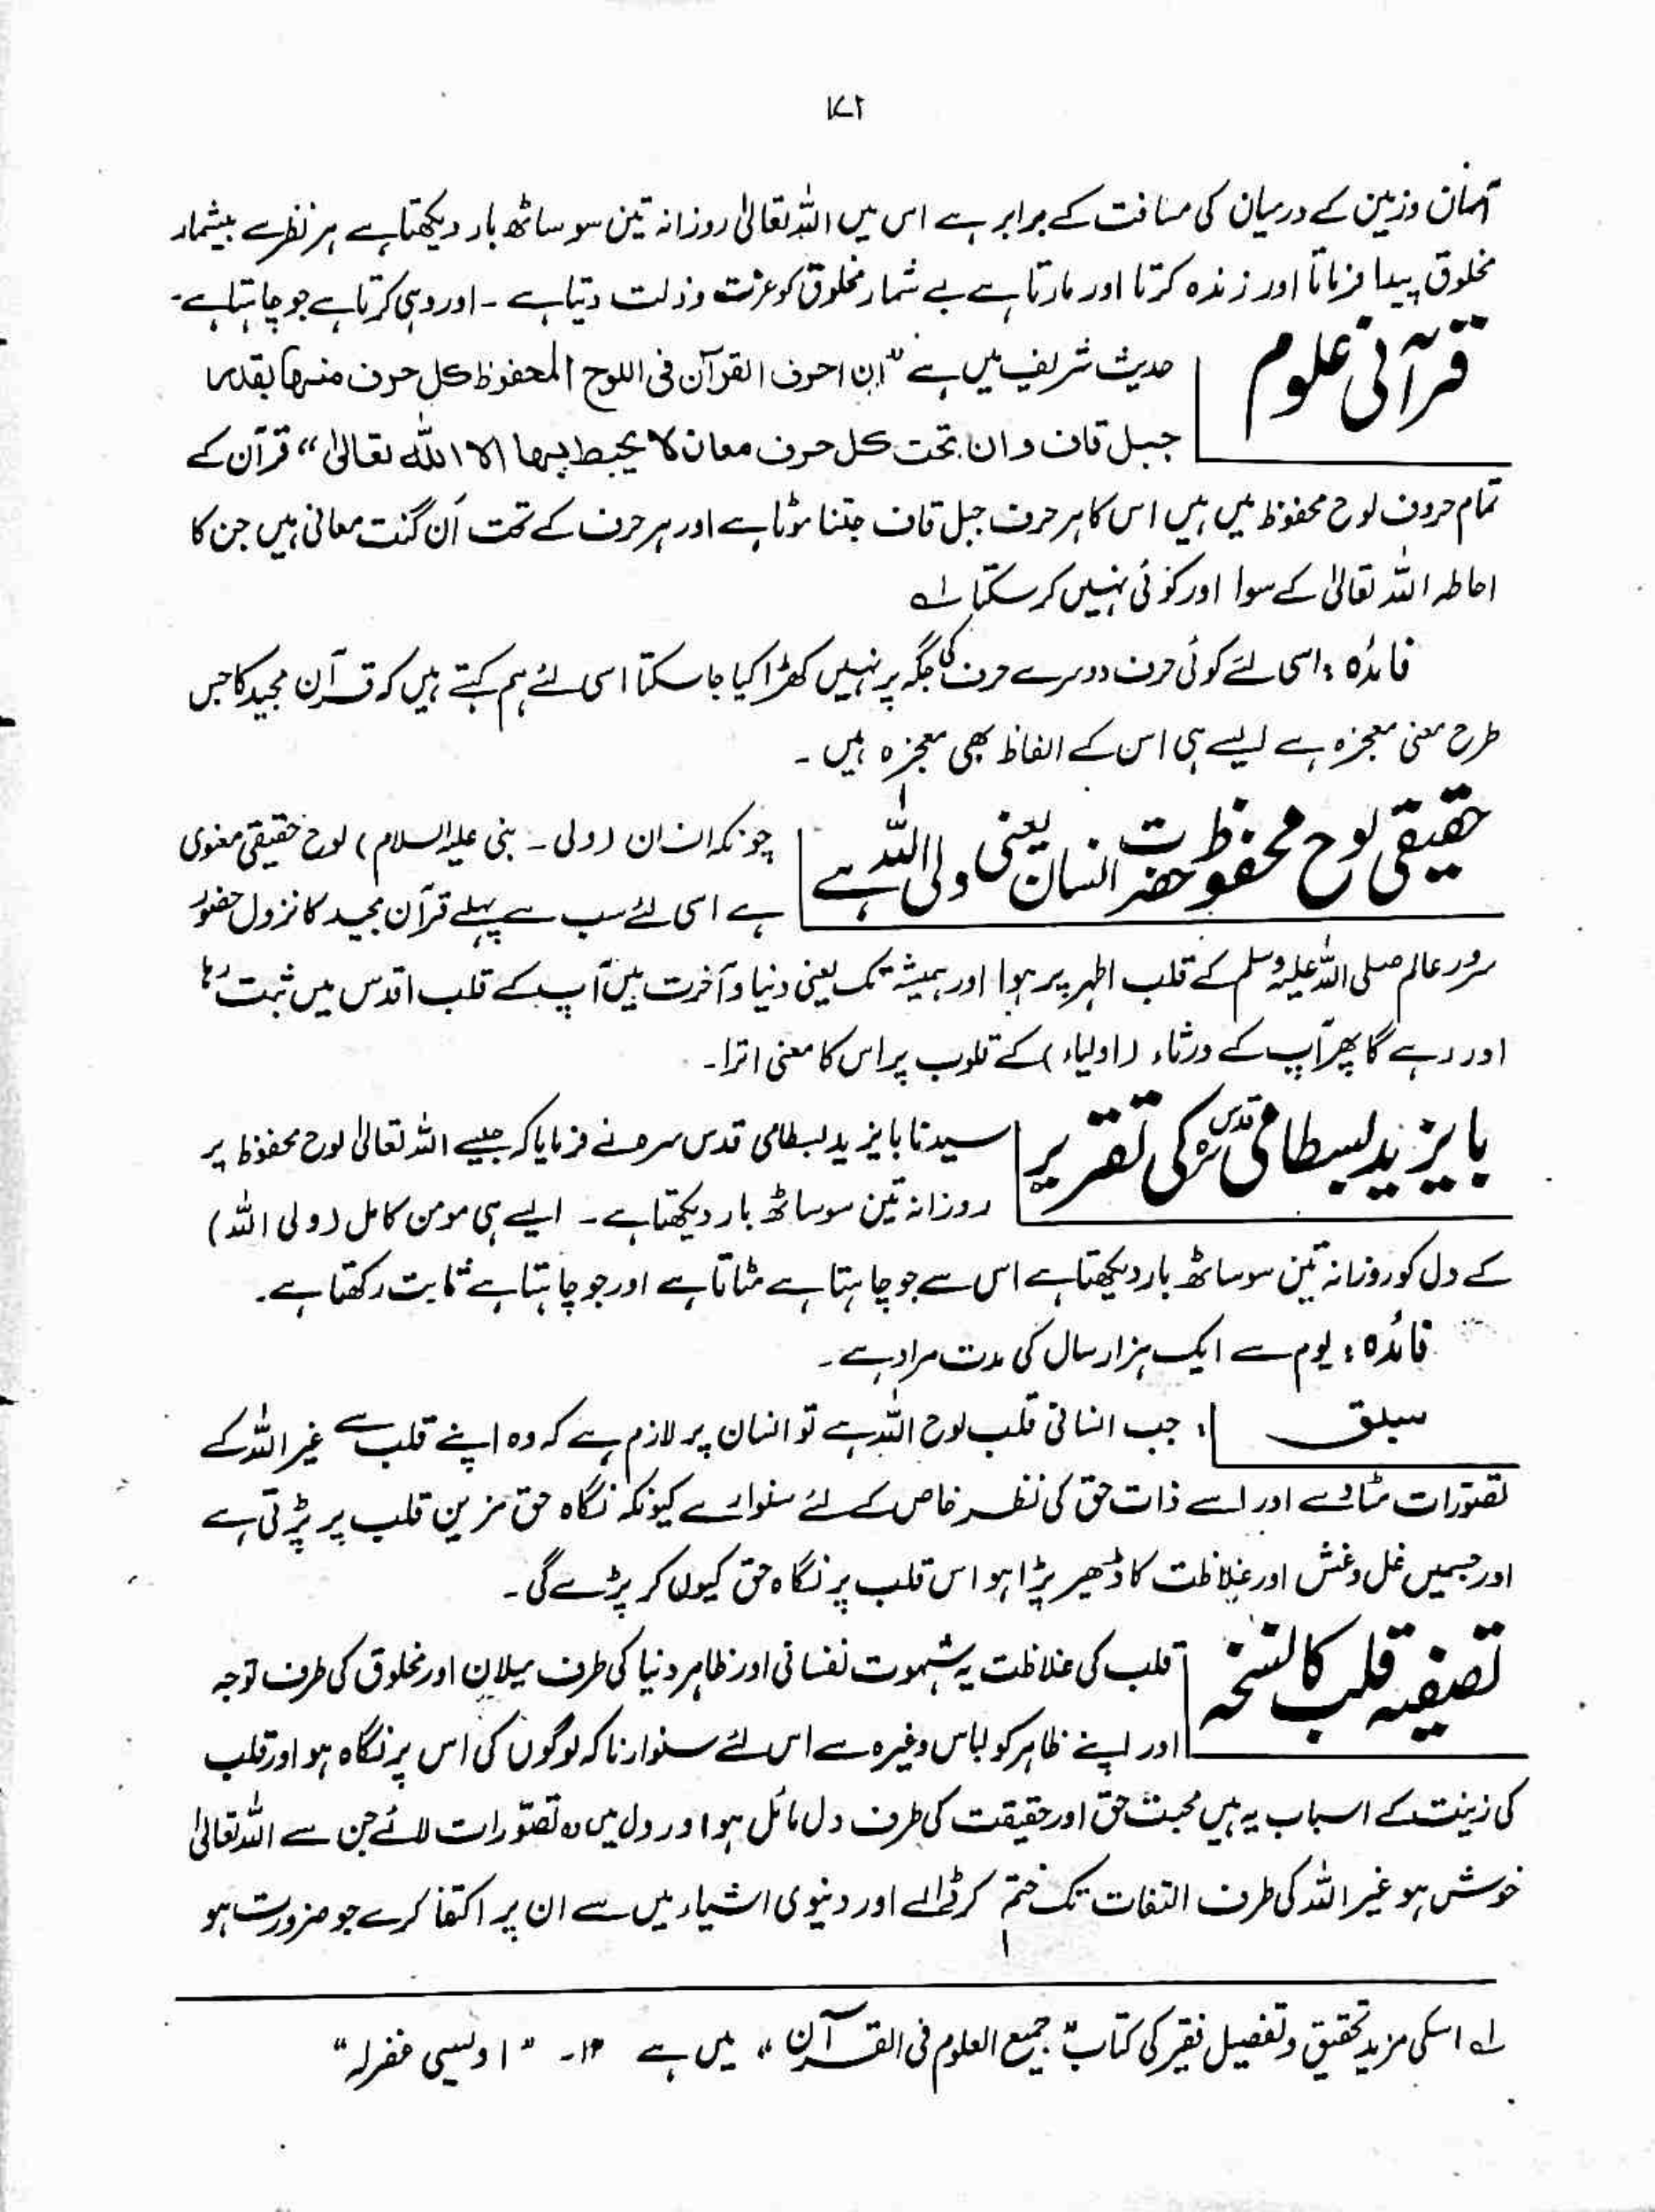 ۱۷۱
آسمان وزمین کے درمیان کی مسافت کے برابر ہے اس میں اللہ تعالیٰ روزانہ تین سو ساٹھ بار دیکھتا ہے ہر نظر سے بیشمار
مخلوق پیدا فرماتا اور زندہ کرتا اور مارتا ہے بے شمار مخلوق کو عزت وذلت دیتا ہے ۔ اور وہی کرتا ہے جو چاہتا ہے۔
قرآنی علوم
حدیث شریف میں ہے "ان احرف القرآن فی اللوح المحفوظ کل حرف منہا بقدر
جبل قاف وان تحت کل حرف معان لا یحیط بہا الا اللہ تعالیٰ" قرآن کے
تمام حروف لوح محفوظ میں ہیں اس کا ہر حرف جبل قاف جتنا موٹا ہے اور ہر حرف کے تحت اَن گنت معانی ہیں جن کا
احاطہ اللہ تعالیٰ کے سوا اور کوئی نہیں کر سکتا لہ
فائدہ : اسی لئے کوئی حرف دوسرے حرف کی جگہ پر نہیں کھڑا کیا جا سکتا اسی لئے ہم کہتے ہیں کہ قرآن مجید کا جس
طرح معنی معجزہ ہے ایسے ہی اس کے الفاظ بھی معجزہ ہیں ۔
حقیقی لوح محفوظ حضرت انسان یعنی ولی اللہ ہے
چونکہ انسان (ولی ۔ نبی علیہ السلام) لوح حقیقی معنوی
ہے اسی لئے سب سے پہلے قرآن مجید کا نزول حضور
سرور عالم صلی اللہ علیہ وسلم کے قلب اطہر پر ہوا اور ہمیشہ تک یعنی دنیا و آخرت میں آپ کے قلب اقدس میں ثبت رہا
اور رہے گا پھر آپ کے ورثاء (اولیاء) کے قلوب پر اس کا معنی اترا۔
بایزید بسطامی قدس سرہ کی تقریر
سیدنا بایزید بسطامی قدس سرہ نے فرمایا کہ جیسے اللہ تعالیٰ لوح محفوظ پر
روزانہ تین سو ساٹھ بار دیکھتا ہے ۔ ایسے ہی مومن کامل (ولی اللہ)
کے دل کو روزانہ تین سو ساٹھ بار دیکھتا ہے اس سے جو چاہتا ہے مٹاتا ہے اور جو چاہتا ہے ثابت رکھتا ہے۔
فائدہ : یوم سے ایک ہزار سال کی مدت مراد ہے ۔
سبق : جب انسانی قلب لوح اللہ ہے تو انسان پر لازم ہے کہ وہ اپنے قلب سے غیر اللہ کے
تصوّرات مٹادے اور اسے ذات حق کی نظر خاص کے لئے سنوارے کیونکہ نگاہ حق مزین قلب پر پڑتی ہے
اور جسمیں غل و غش اور غلاظت کا ڈھیر پڑا ہو اس قلب پر نگاہ حق کیوں کر پڑے گی ۔
تصفیہ قلب کا نسخہ
قلب کی غلاظت یہ شہوت نفسانی اور ظاہر دنیا کی طرف میلان اور مخلوق کی طرف توجہ
اور اپنے ظاہر کو لباس وغیرہ سے اس لئے سنوارنا کہ لوگوں کی اس پر نگاہ ہو اور قلب
کی زینت کے اسباب یہ ہیں محبت حق اور حقیقت کی طرف دل مائل ہو اور دل میں وہ تصوّرات لائے جن سے اللہ تعالیٰ
خوش ہو غیر اللہ کی طرف التفات تک ختم کر ڈالے اور دنیوی اشیاء میں سے ان پر اکتفا کرے جو ضرورت ہو
لہ اسکی مزید تحقیق و تفصیل فقیر کی کتاب "جمیع العلوم فی القرآن" میں ہے ۱۲۔ "اویسی غفرلہ"